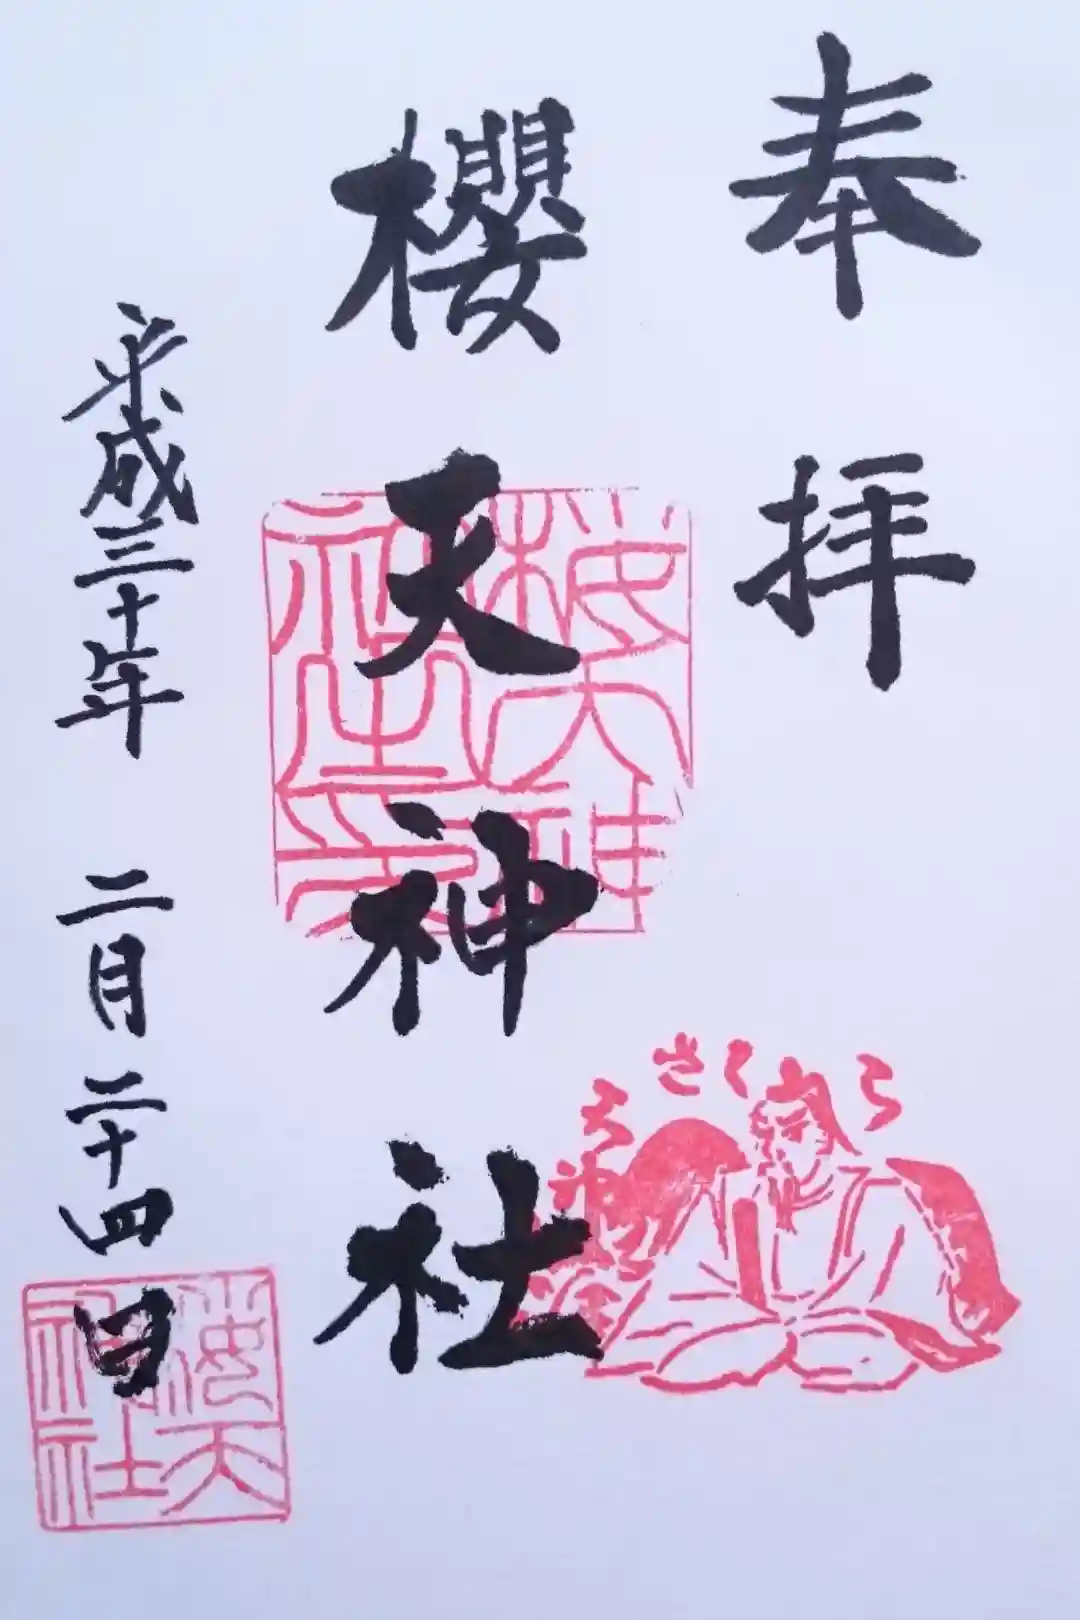 奉拝
櫻天神社
平成三十年 二月二十四日
さくら
天神
桜天神社